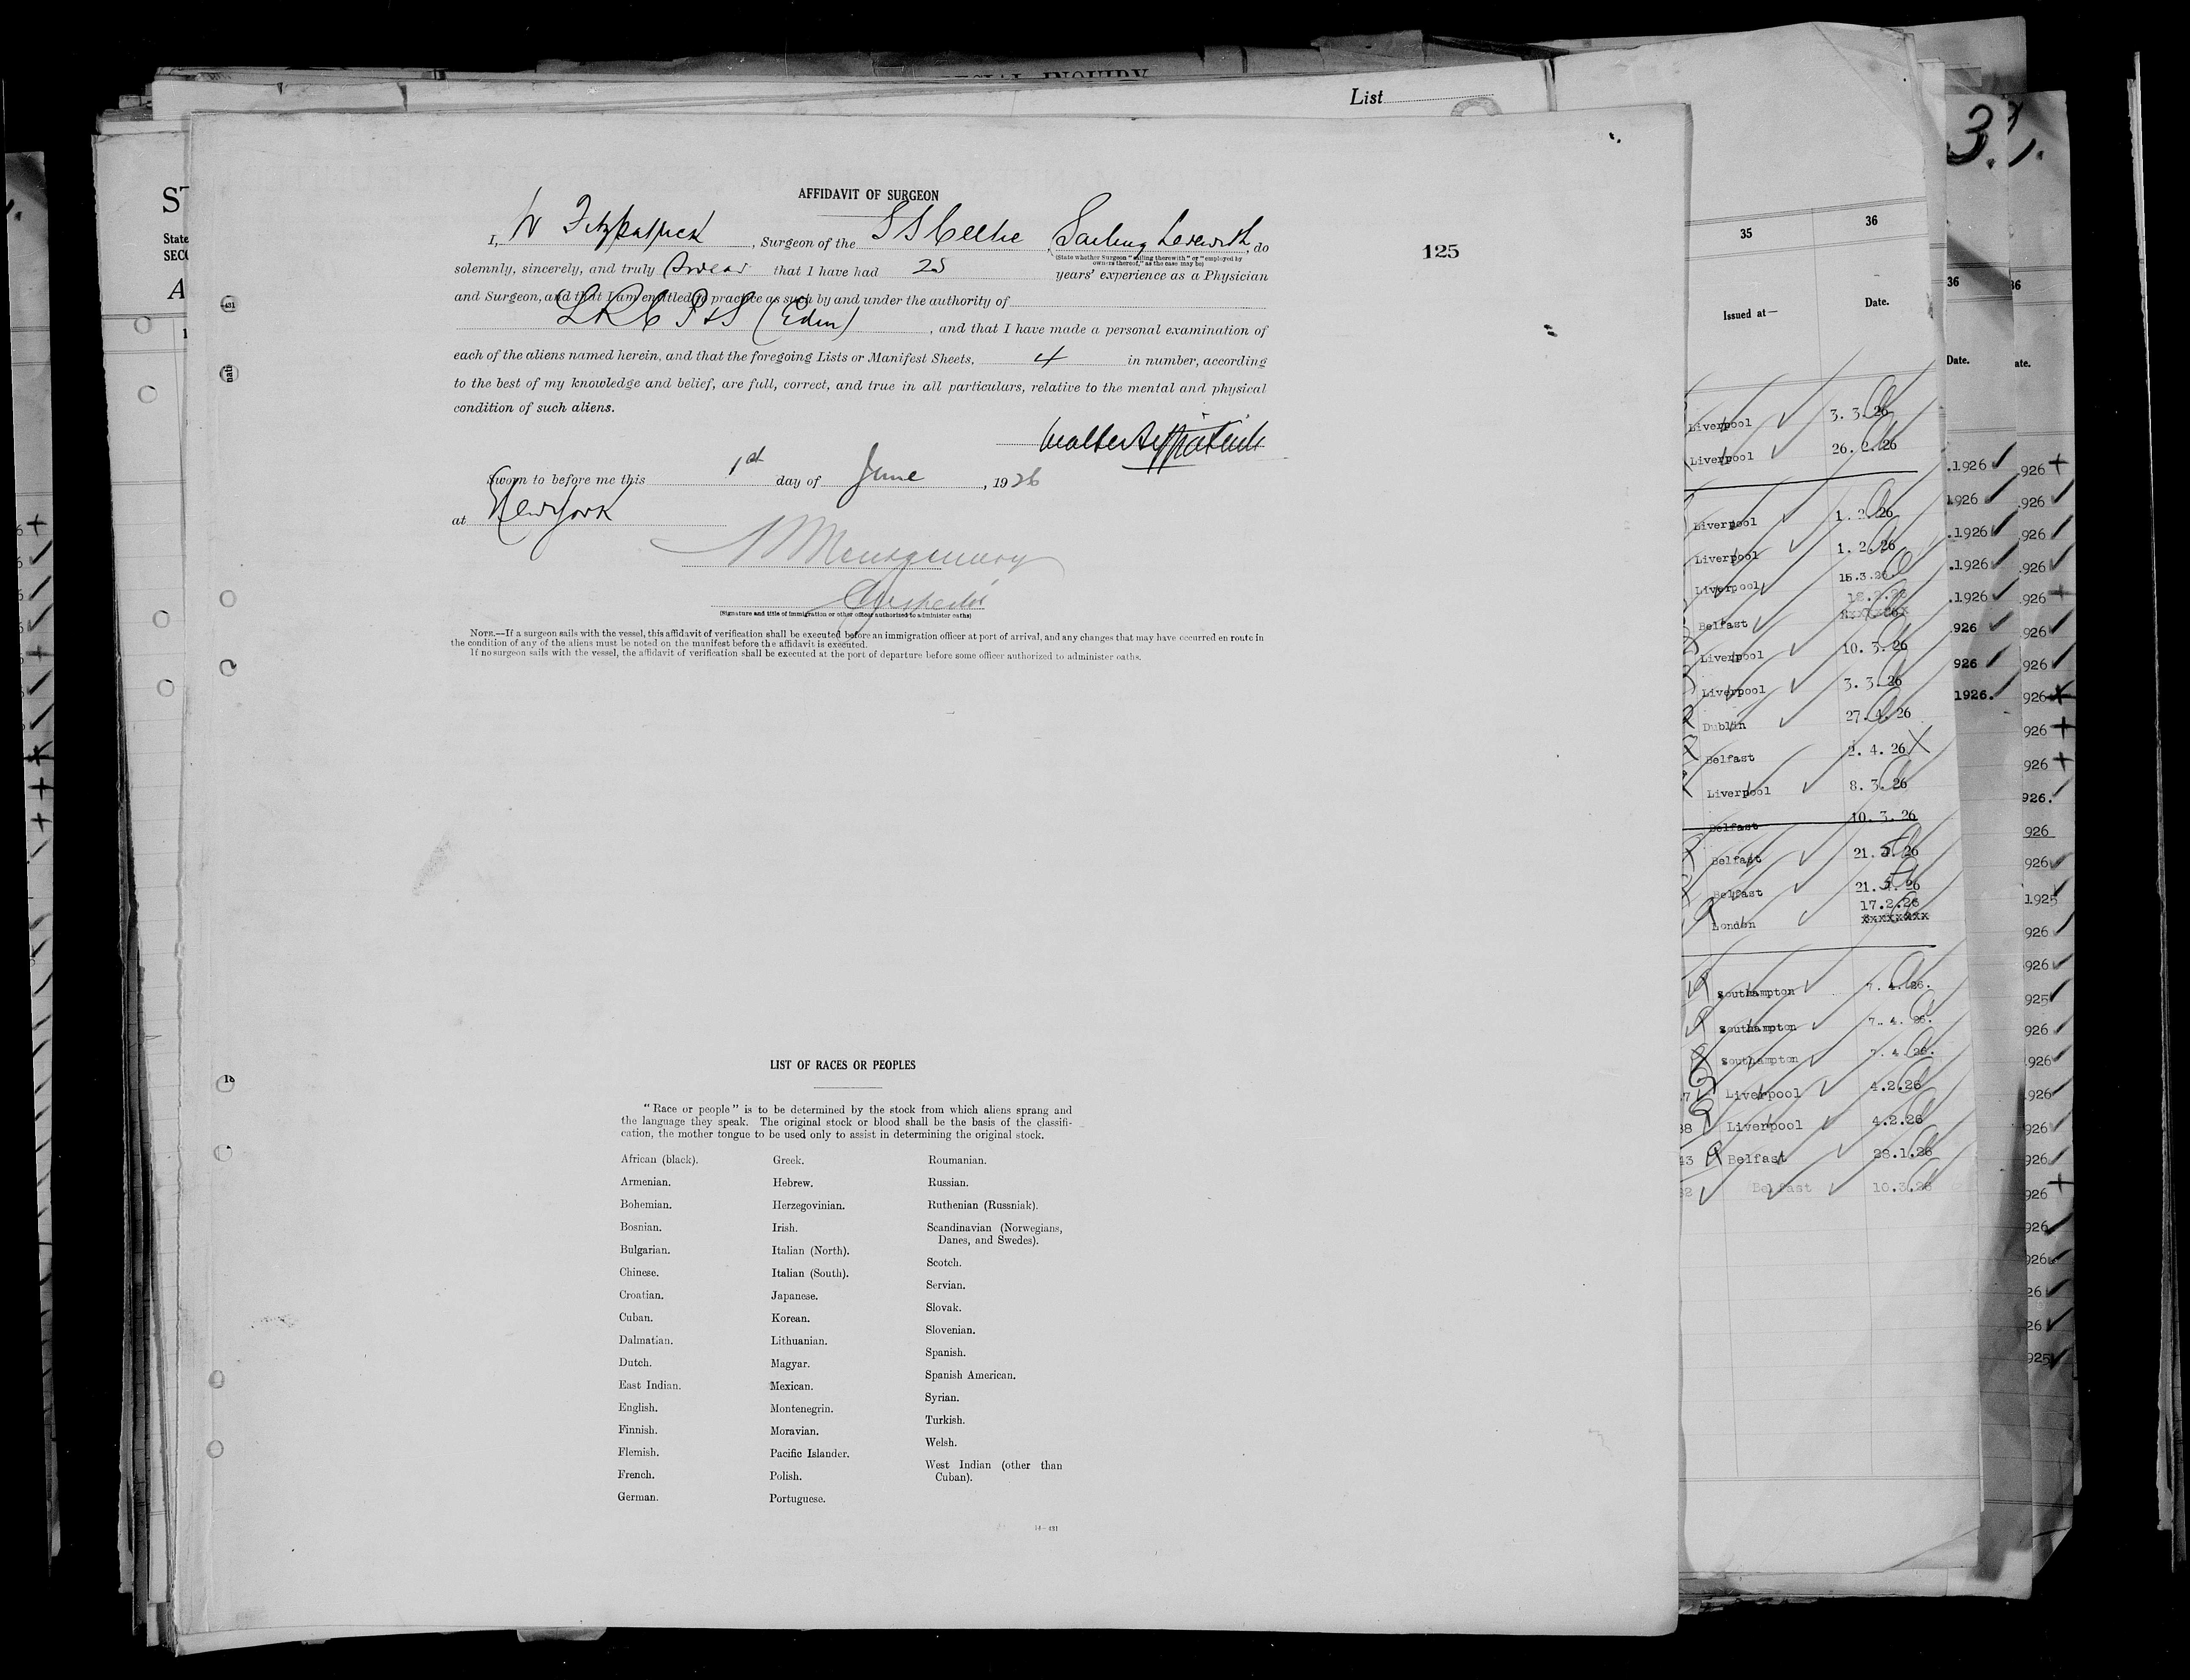 SPECIAL INQUIRY
List
3.
ST
State
SECO
A
AFFIDAVIT OF SURGEON
I, W Fitzpatrick, Surgeon of the SS Celtic Sailing therewith, do
(State whether Surgeon "sailing therewith" or "employed by
owners thereof," as the case may be)
solemnly, sincerely, and truly swear that I have had 25 years' experience as a Physician
and Surgeon, and that I am entitled to practice as such by and under the authority of
LRCP&S (Edin), and that I have made a personal examination of
each of the aliens named herein, and that the foregoing Lists or Manifest Sheets, 4 in number, according
to the best of my knowledge and belief, are full, correct, and true in all particulars, relative to the mental and physical
condition of such aliens.
Walter Fitzpatrick
Sworn to before me this 1st day of June, 1926
at New York
Montgomery
Inspector
(Signature and title of immigration or other officer authorized to administer oaths)
NOTE.—If a surgeon sails with the vessel, this affidavit of verification shall be executed before an immigration officer at port of arrival, and any changes that may have occurred en route in
the condition of any of the aliens must be noted on the manifest before the affidavit is executed.
If no surgeon sails with the vessel, the affidavit of verification shall be executed at the port of departure before some officer authorized to administer oaths.
125
LIST OF RACES OR PEOPLES
"Race or people" is to be determined by the stock from which aliens sprang and
the language they speak. The original stock or blood shall be the basis of the classifi-
cation, the mother tongue to be used only to assist in determining the original stock.
African (black).
Armenian.
Bohemian.
Bosnian.
Bulgarian.
Chinese.
Croatian.
Cuban.
Dalmatian.
Dutch.
East Indian.
English.
Finnish.
Flemish.
French.
German.
Greek.
Hebrew.
Herzegovinian.
Irish.
Italian (North).
Italian (South).
Japanese.
Korean.
Lithuanian.
Magyar.
Mexican.
Montenegrin.
Moravian.
Pacific Islander.
Polish.
Portuguese.
Roumanian.
Russian.
Ruthenian (Russniak).
Scandinavian (Norwegians,
Danes, and Swedes).
Scotch.
Servian.
Slovak.
Slovenian.
Spanish.
Spanish American.
Syrian.
Turkish.
Welsh.
West Indian (other than
Cuban).
35 36
Issued at— Date.
Liverpool 3. 3. 26
Liverpool 26. 2. 26
Liverpool 1. 2. 26
Liverpool 1. 2. 26
Liverpool 15.3.26.
Belfast
Liverpool 10. 3. 26
Liverpool 3. 3. 26
Dublin 27. 4. 26
Belfast 2. 4. 26
Liverpool 8. 3. 26
Belfast 10. 3. 26
Belfast 21. 26
Belfast 21. 26
17.2.26
London xxxxxxxx
Southampton 7. 4. 26.
Southampton 7. 4. 26.
Southampton 7. 4. 26.
Liverpool 4.2.26
Liverpool 4.2.26
Belfast 28.1.26
Belfast 10.3.26
36
Date.
.1926
1926
.1926
.1926
.1926
926
926
1926.
36
ate.
926
926
926
926
926
926
926
926
926
926
926.
926
926
1925
926
926
925
926
926
926
926
926
926
926
926
26
26
925